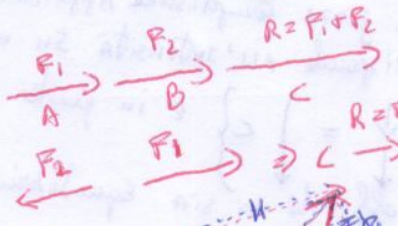 F₁ F₂ R = F₁ + F₂
A B C
F₂ F₁ ⇒ C R =
H